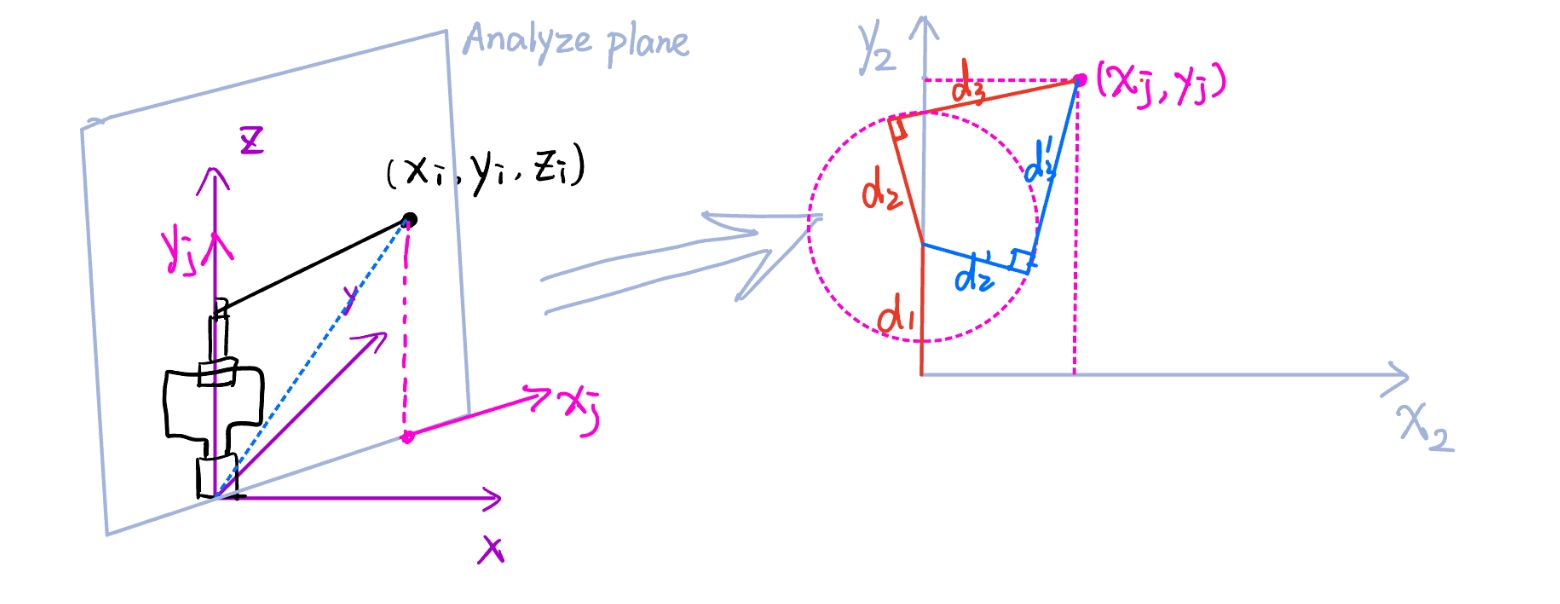 Analyze plane
z
(xi, yi, zi)
yj
y
xj
x
y2
d3
(xj, yj)
d3'
d2
d2'
d1
x2